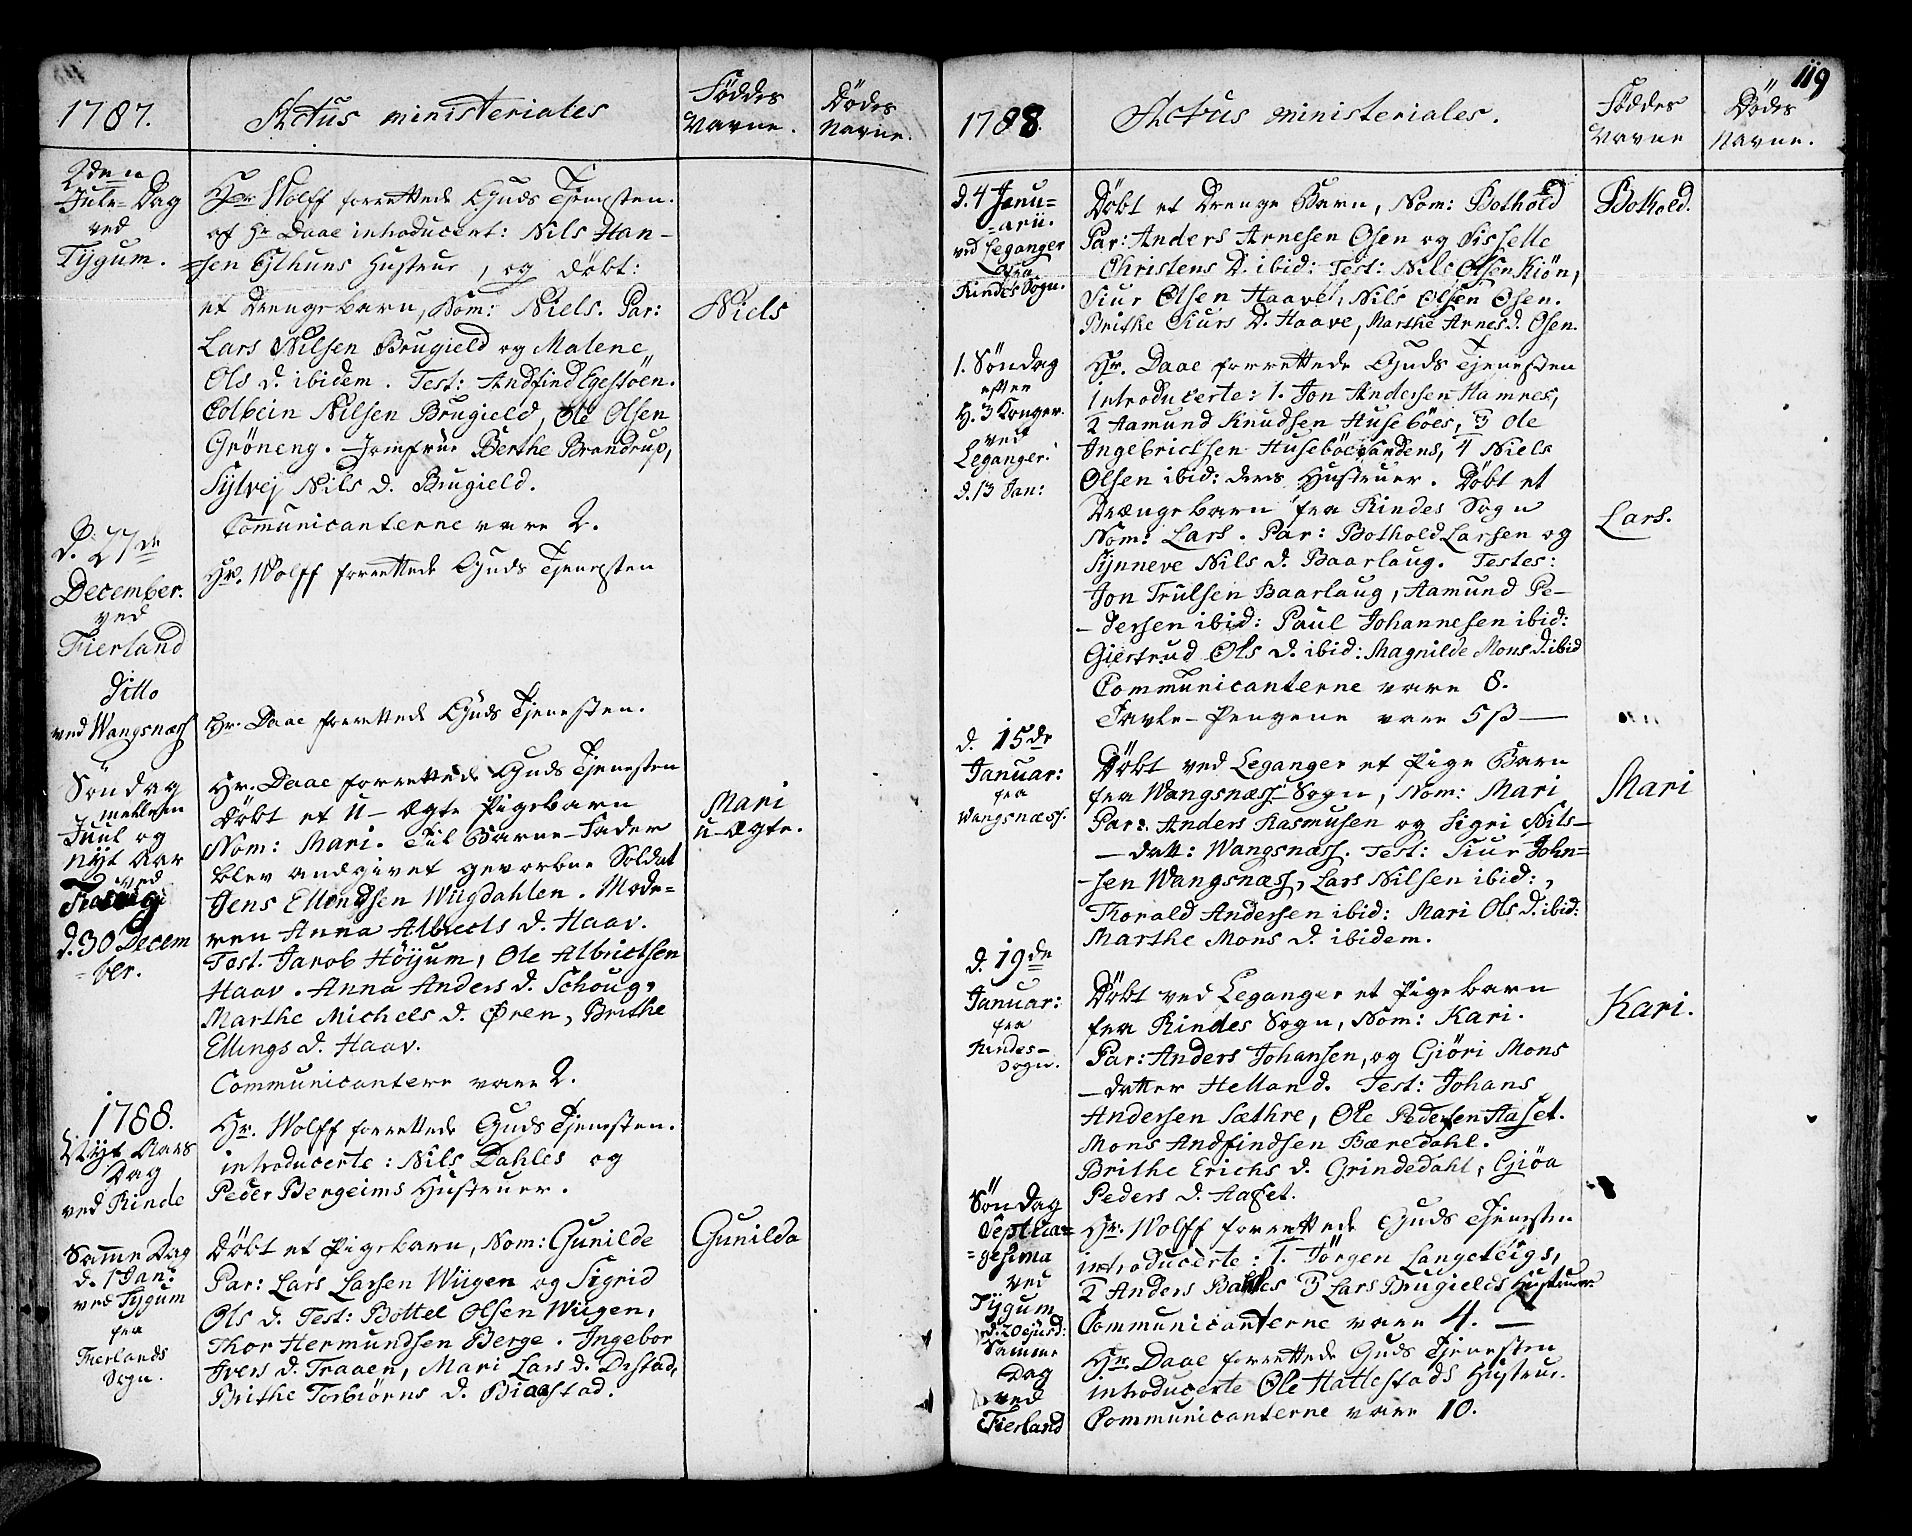 1787.
Actus ministeriales
Føddes
Navne.
Dødes
Navne.
2den
Jule-Dag
ved
Tygum.
Hr Wolff forrettede Guds Tjenesten.
af Hr Daae introducert: Nils Han-
-sen Eslhuns Hustrue, og døbt:
et Drengebarn, Nom: Niels. Par:
Lars Nilsen Brugield og Malene
Ols d. ibidem. Test: Andfind Egessöen.
Colbein Nilsen Brugield, Ole Olsen
Gröneng. Jomfrue Berthe Brandrup,
Sylvej Nils d. Brugield.
Comunicanterne vare 2.
Niels
d. 27de
December.
ved
Fierland
Hr. Wolff forrettede Guds Tjenesten
ditto
ved Wangsnæss
Hr. Daae forrettede Guds Tjenesten.
Söndag
mellem
Juul og
nyt Aar
ved
d. 30 Decem
-ber.
Hr. Daae forrettede Guds Tjenesten
Døbt et U-ægte Pigebarn
Nom: Mari. Til Barne-Fader
blev andgivet gevorbne Soldat
Jens Ellendsen Wiigdahlen. Mode-
ren Anna Albrects d. Haav.
Test. Jacob Höyum, Ole Albrictsen
Haav. Anna Anders d. Schoug,
Marthe Michels d. Øren, Brithe
Ellings d. Haav.
Communicantere vare 2.
Mari
u-ægte.
1788.
Nyt Aars
Dag
ved Rinde
Hr. Wolff forrettede Guds Tjenesten.
introducerte: Nils Dahles og
Peder Bergeims Hustruer.
Samme Dag
d. 1 Jan:
ved Tygum
fra
Fierlands
Sogn.
Døbt et Pigebarn, Nom: Gunilde
Par: Lars Larsen Wiigen og Sigrid
Ols d. Test: Bottel Olsen Wiigen,
Thor Hermundsen Berge. Ingebor
Ivers d. Traaen, Mari Lars d. Distad,
Brithe Torbiörns d. Biaastad.
Gunilda
119
1788.
Actus ministeriales.
Føddes
Navne
Dødes
Navne.
d. 4 Janu-
-arii.
ved Leganger
fra
Rindes Sogn.
Døbt et Drenge Barn, Nom: Bothold
Par: Anders Arnesen Osen og Sisselle
Christens D. ibid: Test: Nils Olsen Kiön,
Siur Olsen Haave, Nils Olsen Osen.
Brithe Siurs D. Haave, Marthe Arnes d. Osen.
Bothold.
1. Söndag
efter
H. 3 Konger
ved
Leganger.
d. 13 Jan:
Hr. Daae forrettede Guds Tjenesten
introducerte: 1. Jon Andersen Hamres,
2 Aamund Knudsen Huseböes, 3 Ole
Ingebrictsen Huseböe 4 Niels
Olsen ibid: deres Hustruer. Døbt et
Drængebarn fra Rindes Sogn
Nom: Lars. Par: Bothold Larsen og
Synneve Nils d. Baarlaug. Testes:
Jon Trulsen Baarlaug, Aamund Pe-
-dersen ibid: Paul Johannesen ibid:
Giertrud Ols d. ibid: Magnilde Mons d. ibid
Communicanterne vare 8.
Tavle-Pengene vare 5 ß —
Lars.
d. 15de
Januar:
fra
Wangsnæss.
Døbt ved Leganger et Pige Barn
fra Wangsnæss Sogn, Nom: Mari
Par: Anders Rasmusen og Sigri Nils-
-datt: Wangsnæss. Test: Siur John-
-sen Wangsnæss, Lars Nilsen ibid:,
Thorald Andersen ibid: Mari Ols d. ibid:
Marthe Mons d. ibidem.
Mari
d. 19de
Januar:
fra
Rindes-
Sogn.
Døbt ved Leganger et Pigebarn
fra Rindes Sogn, Nom: Kari.
Par: Anders Johansen, og Giöri Mons
-datter Helland. Test: Johans
Andersen Sæthre, Ole Pedersen Haset.
Mons Andfindsen Bæredahl.
Brithe Erichs d. Grindedahl, Giöa
Peders d. Haset.
Kari.
Søndag
Septua-
-gesima
ved
Tygum
d. 20 ejusd:
Hr. Wolff forrettede Guds Tjenesten
introducerte: 1. Jörgen Langeteigs,
2 Anders Bahles 3 Lars Brugields Hustruer
Communicanterne vare 4. —
Samme
Dag
ved
Fierland
Hr Daae forrettede Guds Tjenesten
introducerte Ole Hattestads Hustrue.
Communicanterne vare 10.